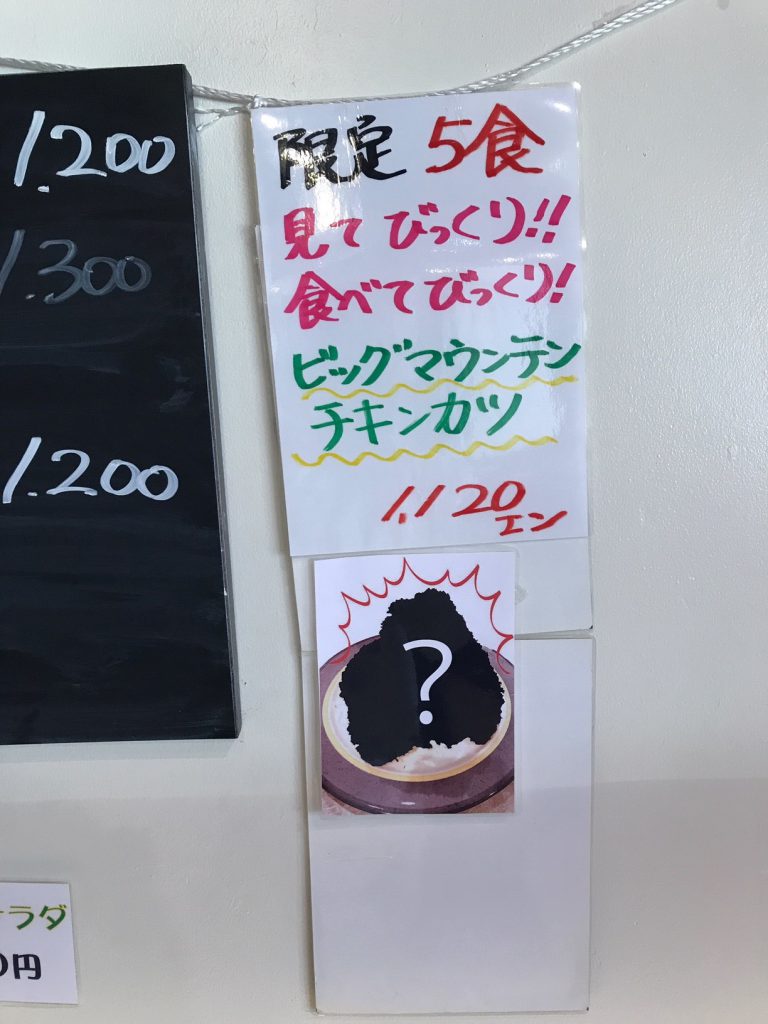 1.200
1.300
1.200
限定 5食
見てびっくり!!
食べてびっくり!
ビッグマウンテン
チキンカツ
1.120エン
?
ラダ
0円